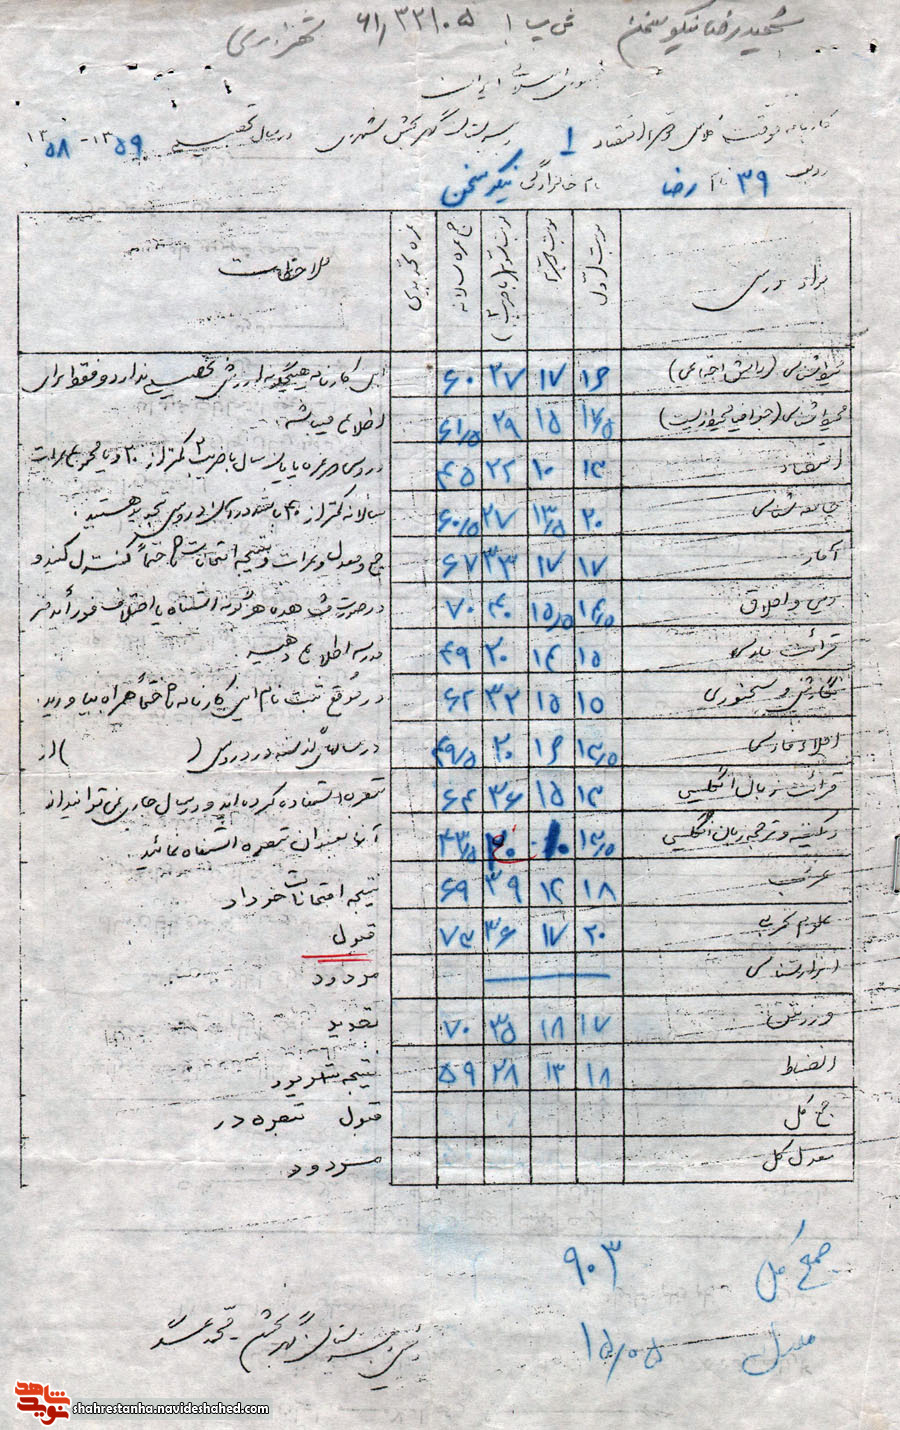 شهید رضا نیکو سخن ش پ ا ۶۱,۳۳۲۱۰۵ شهر ری
جمهوری اسلامی ایران
کارنامه موقت کلاس اقتصاد ۱ دبیرستان گهربخش شهرری در سال تحصیلی ۱۳۵۹-۱۳۵۸
ردیف ۳۹ نام رضا نام خانوادگی نیکو سخن
مواد درسی نوبت اول نوبت دوم نوبت سوم (با ضریب ۲) جمع نمره سالانه نمره تجدیدی ملاحظات
۱۶ ۱۷ ۲۷ ۶۰ این کارنامه هیچگونه ارزش تحصیلی ندارد و فقط برای
۱۷/۵ ۱۵ ۲۹ ۶۱/۵ اطلاع میباشد.
اقتصاد ۱۳ ۱۰ ۲۲ ۴۵ دروسی که نمره پایان سال با ضریب ۲ کمتر از ۲۰ و یا مجموع نمرات
جامعه شناسی ۲۰ ۱۳/۵ ۲۷ ۶۰/۵ سالانه کمتر از ۴۰ باشد در آن دروس تجدید هستید.
آمار ۱۷ ۱۷ ۳۳ ۶۷ جمع و معدل و نمرات و نتیجه امتحانات را حتماً کنترل کنید و
دینی و اخلاق ۱۴/۵ ۱۵/۵ ۴۰ ۷۰ در صورت مشاهده هرگونه اشتباه یا اختلاف فوراً به دفتر
قرائت فارسی ۱۵ ۱۴ ۲۰ ۴۹ مدرسه اطلاع دهید.
نگارش و دستور ۱۵ ۱۵ ۳۲ ۶۲ در موقع ثبت نام این کارنامه را حتماً همراه بیاورید.
املاء فارسی ۱۳/۵ ۱۶ ۲۰ ۴۹/۵ در سالهای گذشته در دروس ( ) از
قرائت زبان انگلیسی ۱۳ ۱۵ ۳۶ ۶۴ تبصره استفاده کرده اید و در سال جاری نمی توانید از
دیکته و ترجمه زبان انگلیسی ۱۳/۵ ۱۰ ۲۰ ۴۳/۵ آنها بعنوان تبصره استفاده نمائید.
عربی ۱۸ ۱۲ ۳۹ ۶۹ نتیجه امتحانات خرداد
علوم تجربی ۲۰ ۱۷ ۳۶ ۷۳ قبول
ابزارشناسی مردود
ورزش ۱۷ ۱۸ ۳۵ ۷۰ تجدید
انضباط ۱۸ ۱۳ ۲۸ ۵۹ نتیجه شهریور
جمع کل قبول تبصره در
معدل کل مردود
جمع کل ۹۰۳
معدل ۱۵/۰۵
رئیس دبیرستان گهربخش
شاهد نوید
shahrestanha.navideshahed.com